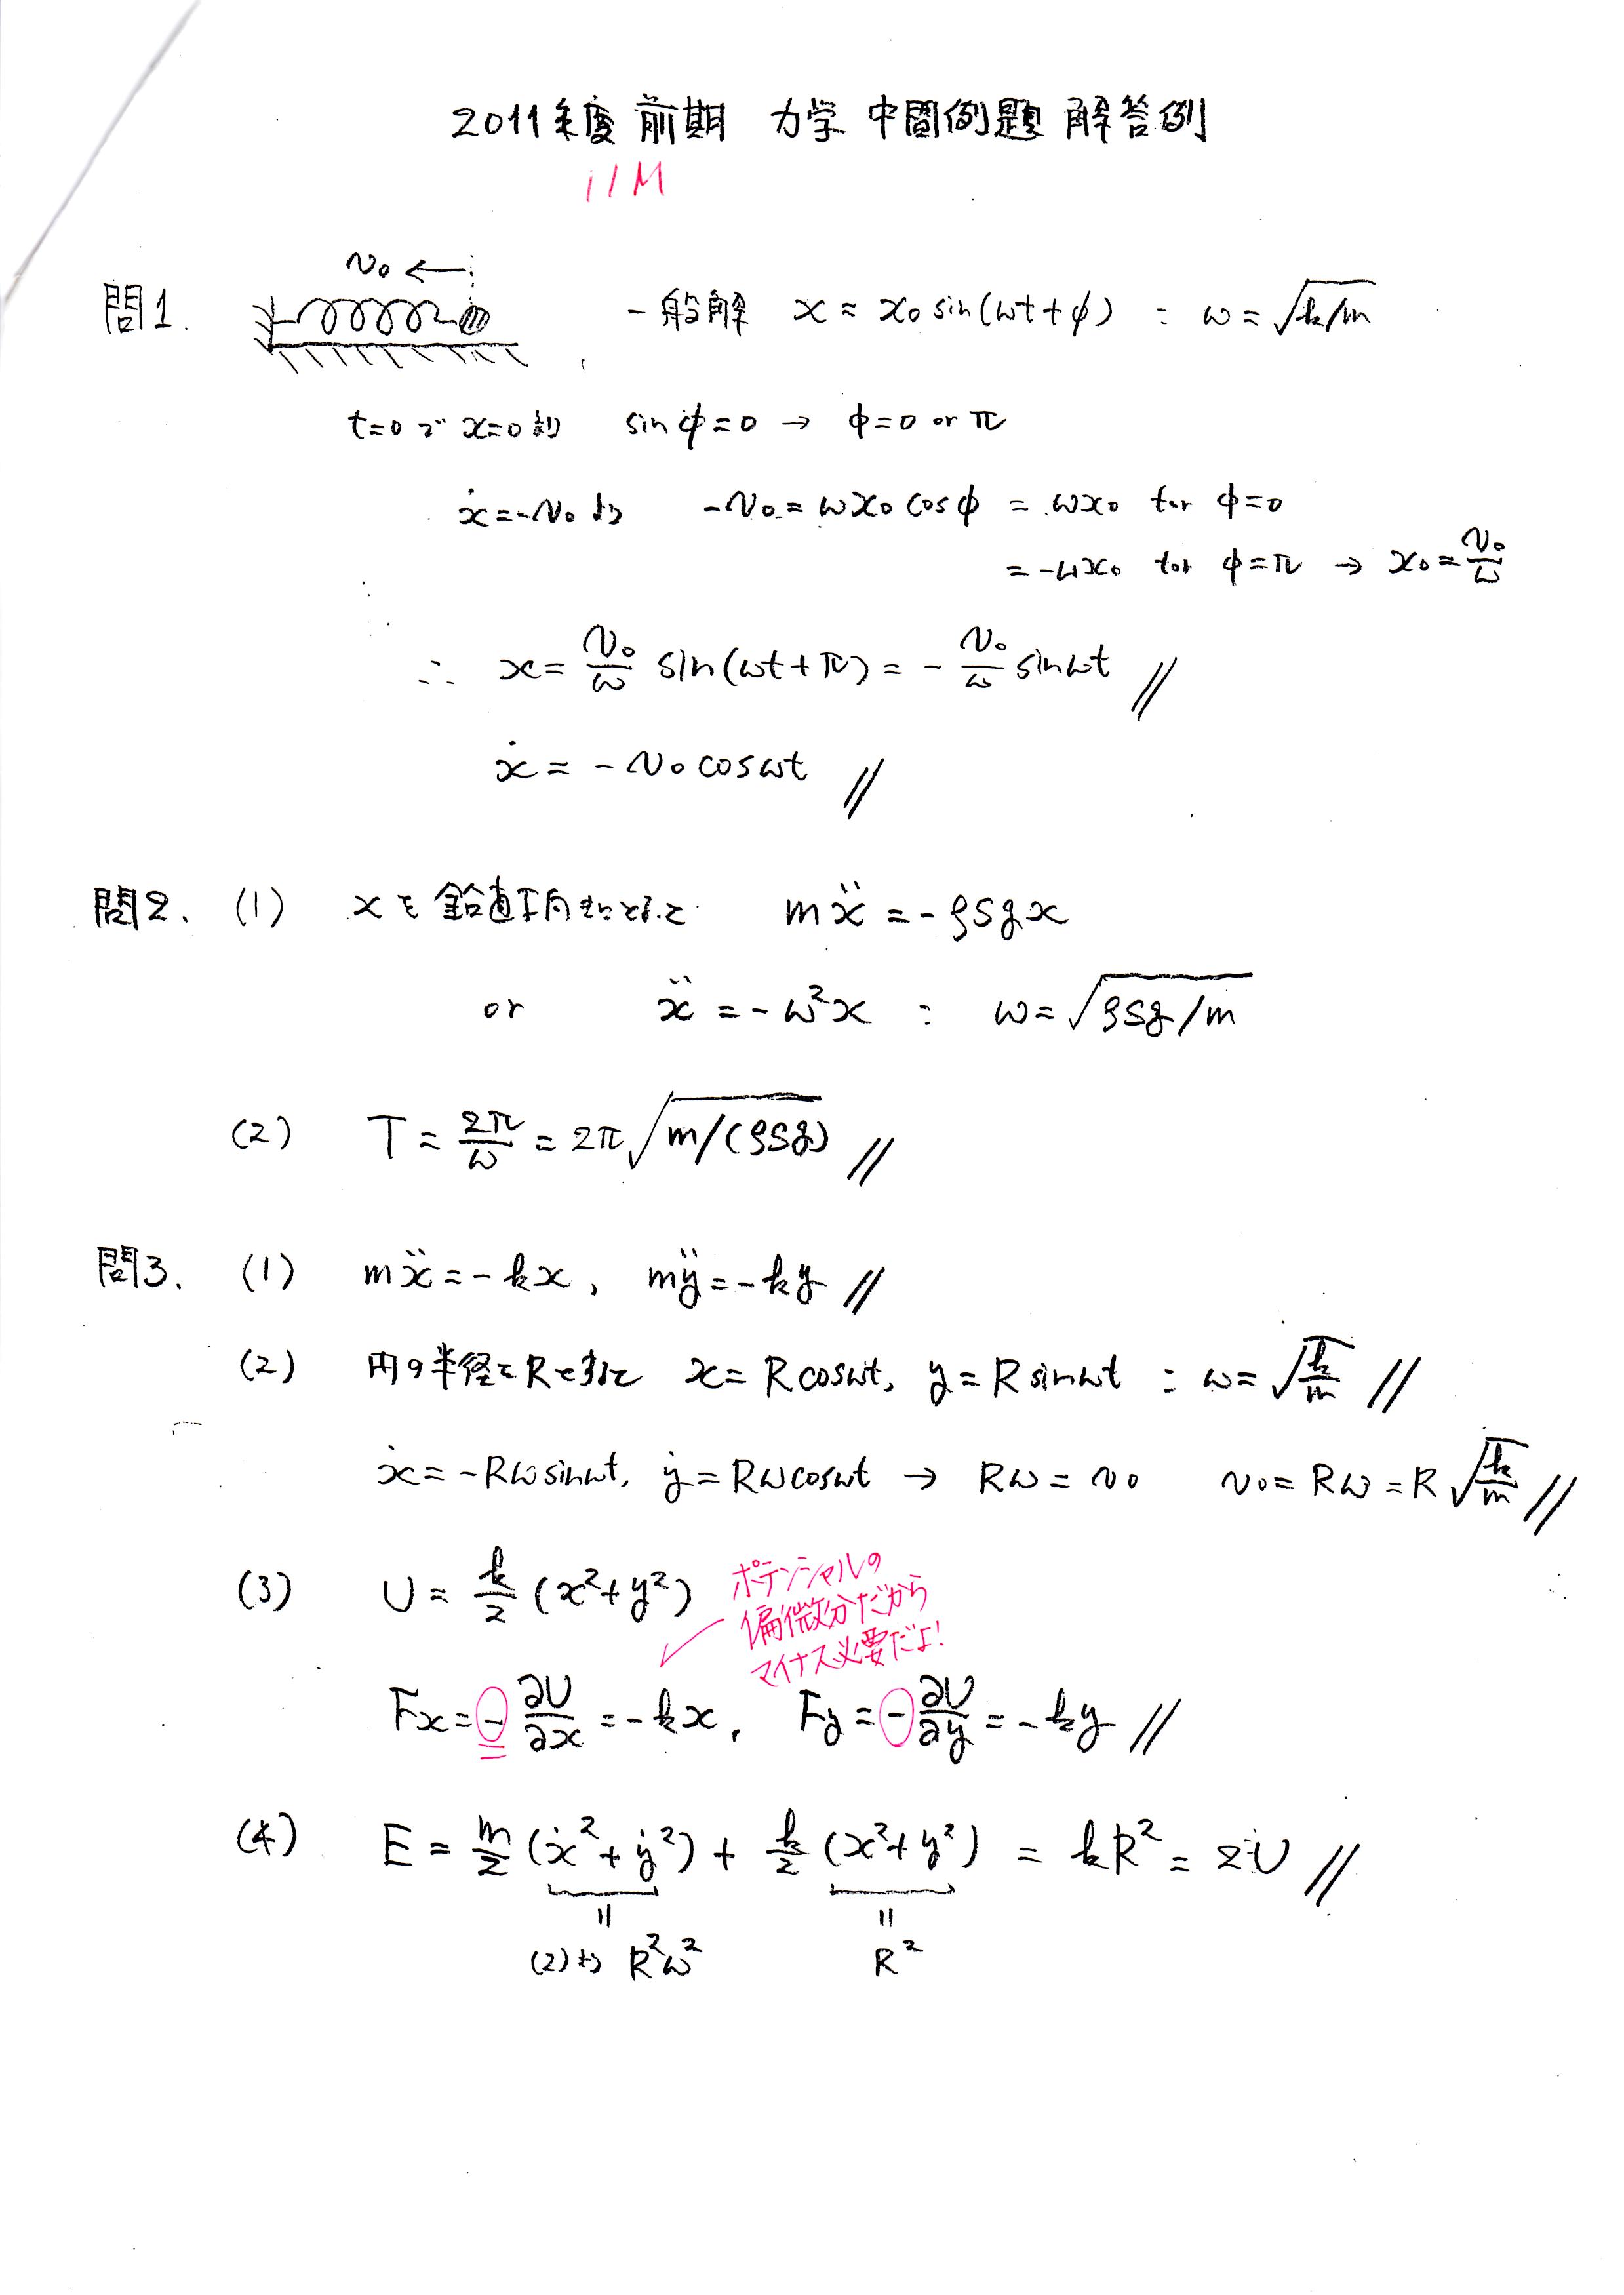 2011年度 前期 力学 中間例題 解答例
11M
問1. v₀ ← 一般解 x = x₀ sin(ωt+φ) : ω = √(k/m)
t=0で x=0より sinφ=0 → φ=0 or π
ẋ=-v₀より -v₀ = ωx₀ cosφ = ωx₀ for φ=0
= -ωx₀ for φ=π → x₀ = v₀/ω
∴ x = v₀/ω sin(ωt+π) = - v₀/ω sinωt //
ẋ = -v₀ cosωt //
問2. (1) xを鉛直下向きにとると mẍ = -ρSgx
or ẍ = -ω²x : ω = √(ρSg/m)
(2) T = 2π/ω = 2π√(m/(ρSg)) //
問3. (1) mẍ = -kx, mÿ = -ky //
(2) 円の半径をRとすると x = R cosωt, y = R sinωt : ω = √(k/m) //
ẋ = -Rω sinωt, ẏ = Rω cosωt → Rω = v₀ v₀ = Rω = R√(k/m) //
(3) U = k/2 (x²+y²)
ポテンシャルの
偏微分だから
マイナス必要だよ!
Fx = - ∂U/∂x = -kx, Fy = - ∂U/∂y = -ky //
(4) E = m/2 (ẋ²+ẏ²) + k/2 (x²+y²) = kR² = 2U //
|| ||
(2)より R²ω² R²